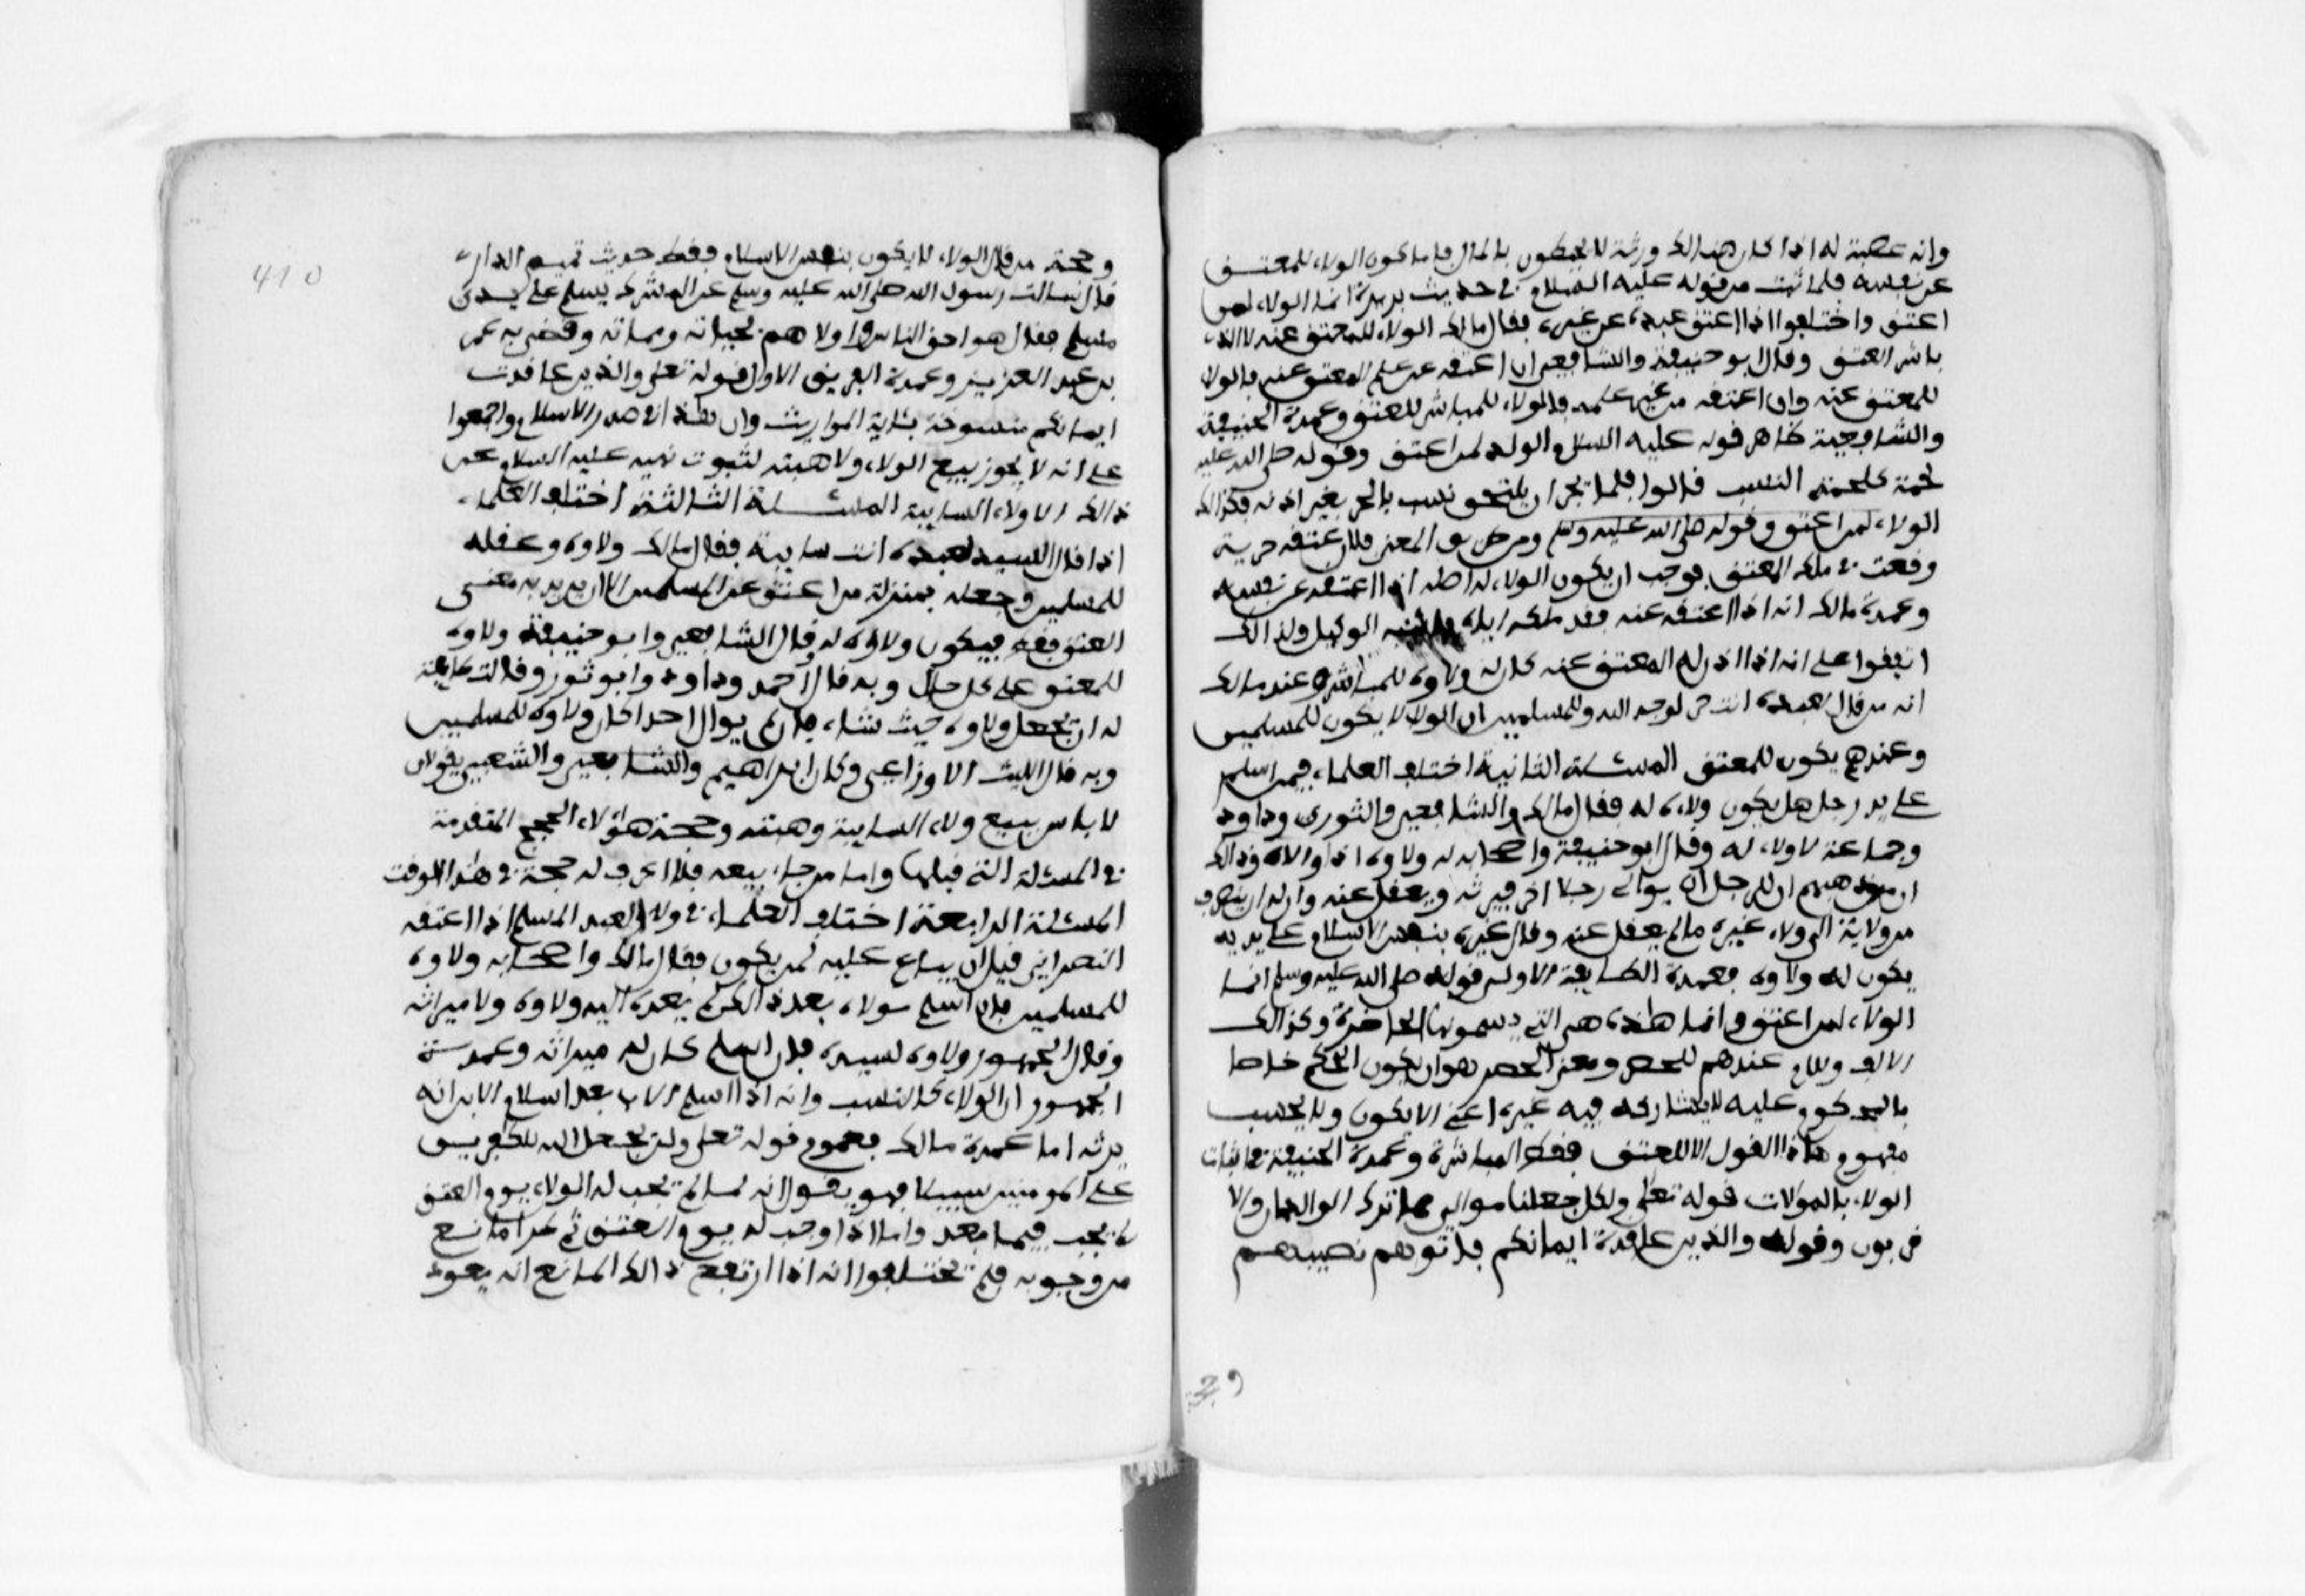 وانه عصبة له اذا كان هنالك ورثة لا يحيطون بالمال فاما كون الولاء للمعتق
عن نفسه فلما ثبت من قوله عليه السلام في حديث بريرة انما الولاء لمن
اعتق واختلفوا اذا اعتق عبده عن غيره فقال مالك الولاء للمعتق عنه لا الذي
باشر العتق وقال ابو حنيفة والشافعي ان اعتقه عن علم المعتق عنه فالولا
للمعتق عنه وان اعتقه من غير علمه فالولاء للمباشر للعتق وعمدة الحنيفية
والشافعية ظاهر قوله عليه السلام الولاء لمن اعتق وقوله صلى الله عليه
لحمة كلحمة النسب قالوا فلما لم يجز ان يلتحق نسب بالحر بغير اذنه فكذالك
الولاء لمن اعتق وقوله صلى الله عليه وسلم ومن طريق المعنى فلان عتقه حرية
وقعت في ملك المعتق فوجب ان يكون الولاء له اصله اذا اعتقه عن نفسه
وعمدة مالك انه اذا اعتقه عنه فقد ملكه اياه فاشبه الوكيل ولذالك
اتفقوا على انه اذا اذن له المعتق عنه كان له ولاوه للمباشر وعند مالك
انه من قال لعبده انت حر لوجه الله وللمسلمين ان الولا لا يكون للمسلمين
وعندهم يكون للمعتق المسئلة الثانية اختلف العلماء فيمن اسلم
على يد رجل هل يكون ولاءه له فقال مالك والشافعي والثوري وداود
وجماعة لا ولاء له وقال ابو حنيفة واصحابه له ولاوه اذا والاه وذالك
ان مذهبهم ان للرجل ان يوالي رجلا اخر فيرثه ويعقل عنه وان له ان ينصرف
من ولاية الى ولاء غيره ما لم يعقل عنه وقال غيره بنفس الاسلام على يديه
يكون له ولاوه فعمدة الطايفة الاولى قوله صلى الله عليه وسلم انما
الولاء لمن اعتق وانما هذه هي التي يسمونها الحاصرة وكذالك
الالف واللام عندهم للحصر ومعنى الحصر هو ان يكون الحكم خاصا
بالمحكوم عليه لا يشاركه فيه غيره اعني الا يكون ولاء بحسب
مفهوم هاذا القول الا للمعتق فقط المباشرة وعمدة الحنيفية في اثبات
الولاء بالموالات قوله تعلى ولكل جعلنا موالي مما ترك الوالدان والا
قربون وقوله والذين عاقدة ايمانكم فاتوهم نصيبهم
وحجة من قال الولاء لا يكون بنفس الاسلام فقط حديث تميم الداري
قال سالت رسول الله صلى الله عليه وسلم عن المشرك يسلم على يدي
مسلم فقال هو احق الناس واولاهم بحياته ومماته وقضى به عمر
بن عبد العزيز وعمدة الفريق الاول قوله تعلى والذين عاقدت
ايمانكم منسوخة بئاية المواريث وان هذا في صدر الاسلام واجمعوا
على انه لا يجوز بيع الولاء ولا هبته لثبوت نهيه عليه السلام عن
ذالك الا ولاء السايبة المسئلة الثالثة اختلف العلماء
اذا قال السيد لعبده انت سايبة فقال مالك ولاوه وعقله
للمسلمين وجعله بمنزلة من اعتق عن المسلمين الا ان يريد به معنى
العتق فقط فيكون ولاوه له وقال الشافعي وابو حنيفة ولاوه
للمعتق على كل حال وبه قال احمد وداود وابو ثور وقالت طايفة
له ان يجعل ولاوه حيث شاء فان لم يوال احدا كان ولاوه للمسلمين
وبه قال الليث الاوزاعي وكان ابراهيم والشافعي والشعبي يقولان
لا باس ببيع ولاء السايبة وهبته وحجة هؤلاء الحجج المتقدمة
في المسئلة التي قبلها واما من جاء بيعه فلا اعرف له حجة في هذا الوقت
المسئلة الرابعة اختلف العلماء في ولاء العبد المسلم اذا اعتقه
النصراني قبل ان يباع عليه لمن يكون فقال مالك واصحابه ولاوه
للمسلمين فان اسلم مولاه بعد ذالك لم يعد اليه ولاوه ولا ميراثه
وقال الجمهور ولاوه لسيده فان اسلم كان له ميراثه وعمدة
الجمهور ان الولاء كالنسب وانه اذا اسلم الاب بعد اسلام الابن انه
يرثه اما عمدة مالك فعموم قوله تعلى ولن يجعل الله للكفرين
على المومنين سبيلا فهو يقول انه لما لم يجب له الولاء يوم العتق
لم يجب فيما بعد واما اذا وجب له يوم العتق ثم طرا مانع
من وجوبه فلم يختلفوا انه اذا ارتفع ذالك المانع انه يعود
410